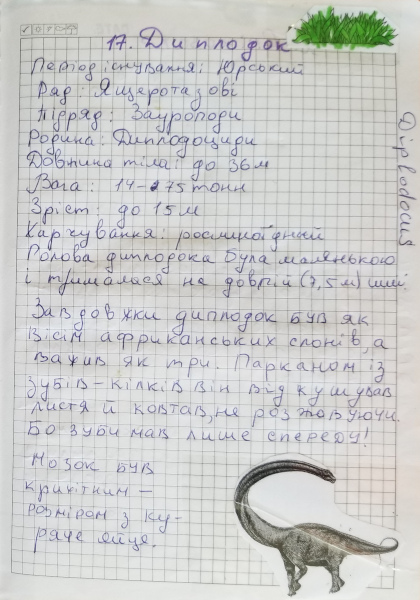 17. Диплодок
Період існування: Юрський
Ряд: Ящеротазові
Підряд: Зауроподи
Родина: Диплодоциди
Довжина тіла: до 36м
Вага: 14-275тонн
Зріст: до 15м
Харчування: рослиноїдний
Голова диплодока була маленькою
і трималася на довгій (7,5м) шиї.
Завдовжки диплодок був як
вісім африканських слонів, а
важив як три. Парканом із
зубів-кілків він відкушував
листя й ковтав, не розжовуючи.
Бо зуби мав лише спереду!
Мозок був
крихітним -
розміром з ку-
ряче яйце.
Diplodocus